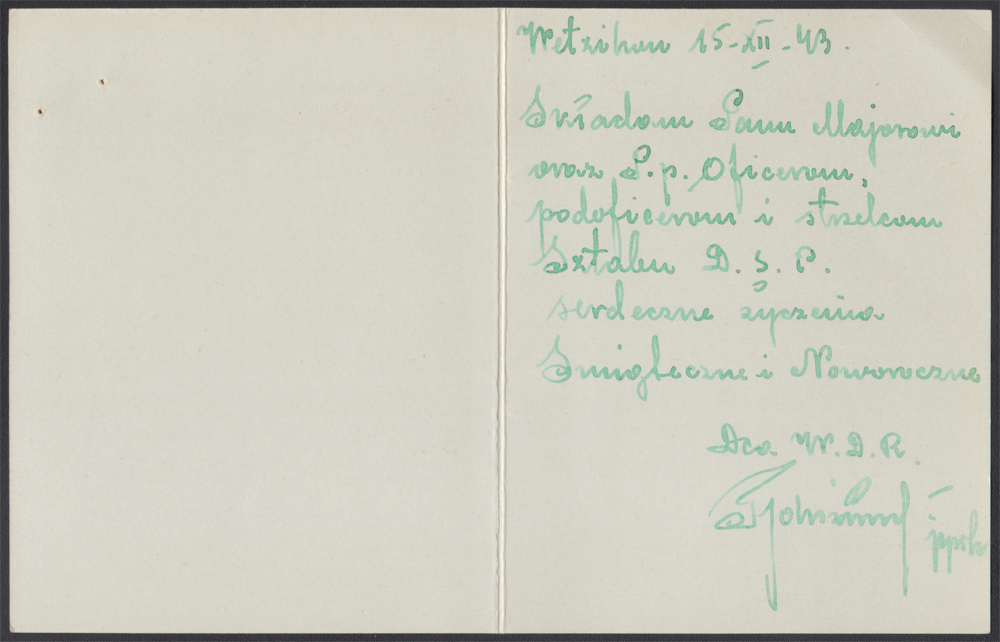 Wetzikon 15-XII-43.
Składam Panu Majorowi
oraz P.p. Oficerom,
podoficerom i strzelcom
Sztabu D. S. P.
serdeczne życzenia
Świąteczne i Noworoczne
Dca W. D. R.
ppłk